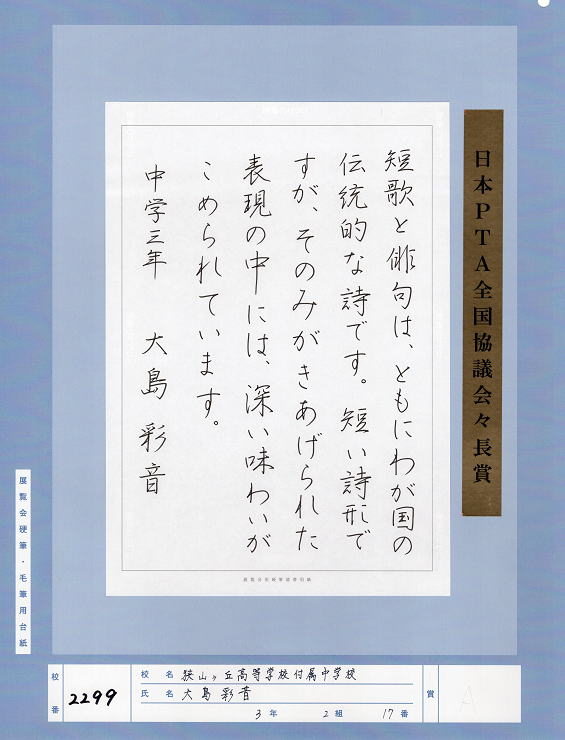 日本PTA全国協議会々長賞
短歌と俳句は、ともにわが国の
伝統的な詩です。短い詩形で
すが、そのみがきあげられた
表現の中には、深い味わいが
こめられています。
中学三年 大島彩音
展覧会硬筆・毛筆用台紙
校番 2299
校名 狭山ヶ丘高等学校付属中学校
氏名 大島彩音
3年 2組 17番
賞 A